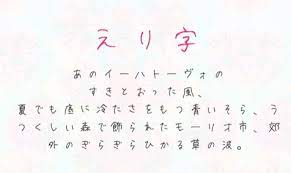 えり字
あのイーハトーヴォの
すきとおった風、
夏でも底に冷たさをもつ青いそら、う
つくしい森で飾られたモーリオ市、郊
外のぎらぎらひかる草の波。